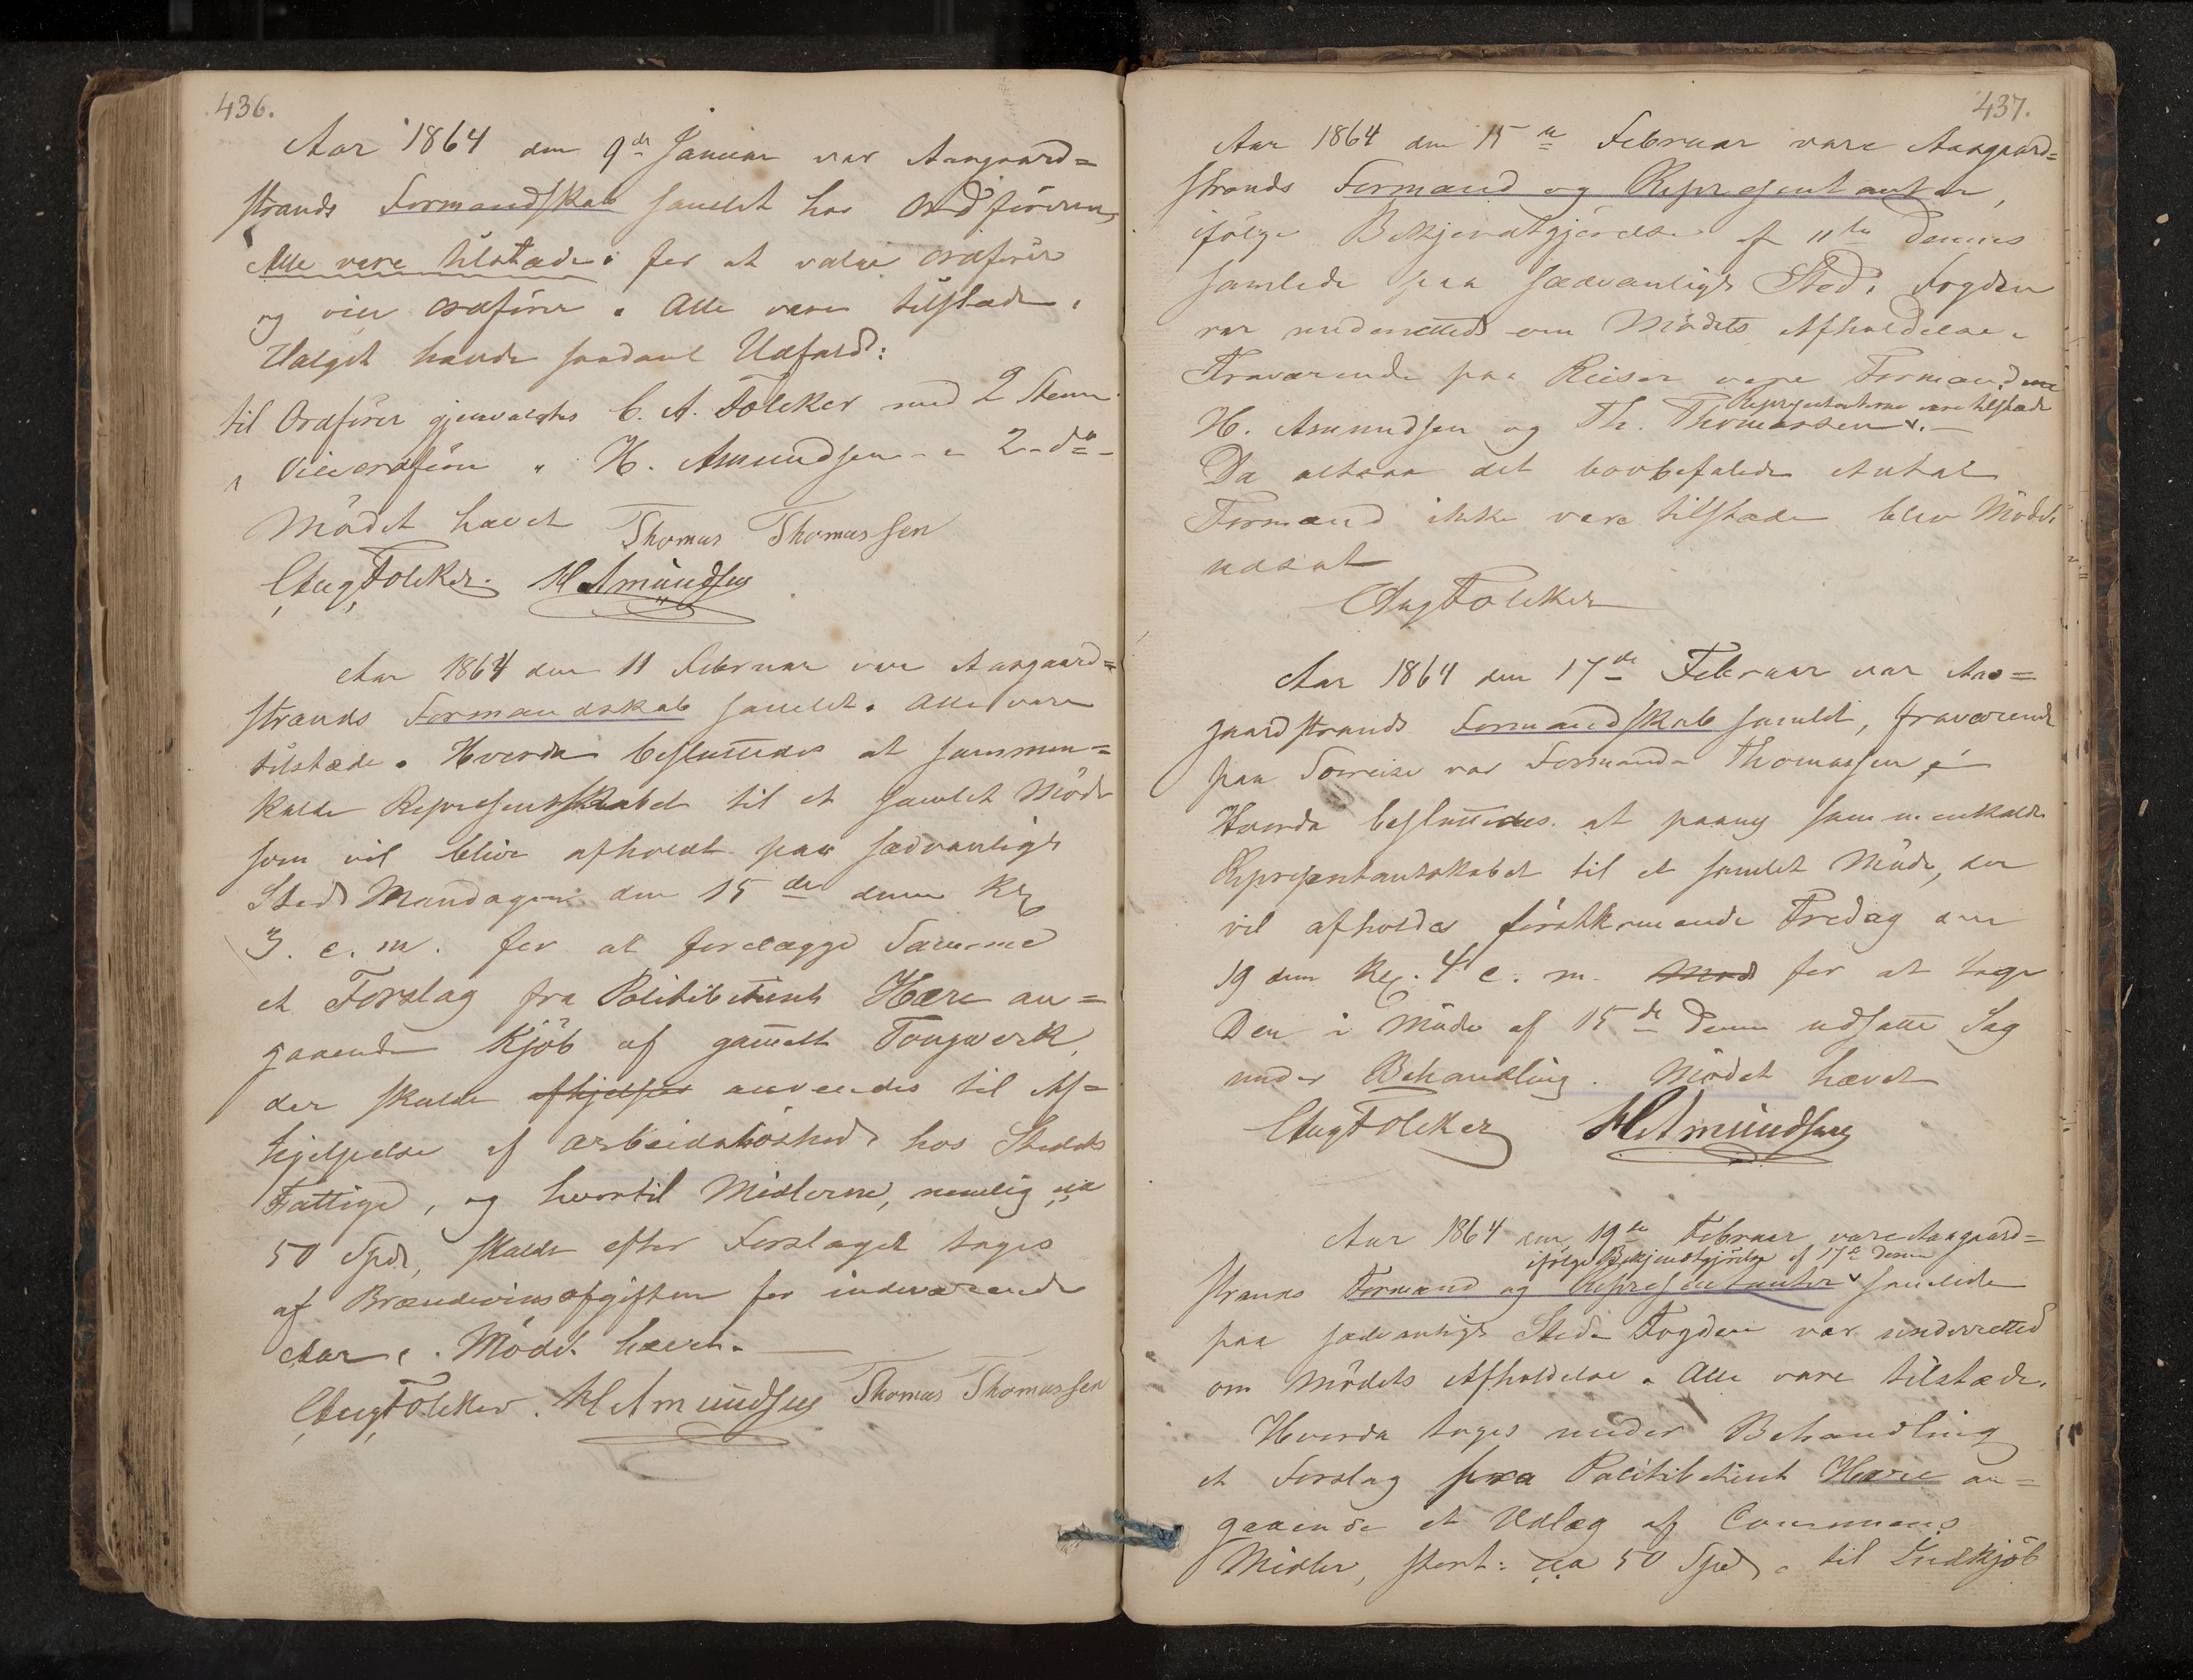 436.
Aar 1864 den 9de Januar var Aasgaard=
strands Formandskab samlet hos Ordføreren,
Alle vare tilstæde. for at vælge Ordfører
og vice Ordfører. Alle vare tilstæde.
Valget havde saadant Udfald:
til Ordfører gjenvalgtes C. A. Følcker med 2 Stem
" Viceordfører " H. Amundsen - " 2 do -
Mødet hævet Thomas Thomassen
CAugFölcker. HAmundsen
Aar 1864 den 11 Februar var Aasgaard=
strands Formandskab samlet. Alle vare
tilstæde. Hvorda besluttedes at sammen=
kalde Represenskabet til et samlet Møde
som vil blive afholdt paa sædvanligt
Sted Mandagen den 15de denne Kl
3. e. m. for at forelægge Samme
et Forslag fra Politibetjent Hære an=
gaaende Kjøb af gammelt Tougværk,
der skulde afhjelpes anvendes til Af=
hjelpelse af Arbeidsløshed hos Stedets
Fattige, og hvortil Midlerne, nemlig ca
50 Spd, skulde efter Forslaget tages
af Brændevinsafgiften for indeværende
Aar. Mødet hævet.
CAugFölcker. HAmundsen Thomas Thomassen
437.
Aar 1864 den 15de Februar vare Aasgaard=
strands Formænd og Representanter,
ifølge Bekjendtgjørelse af 11te Dennes
samlede paa sædvanligt Sted. Fogden
var underrettet om Mødets Afholdelse.
Fraværende paa Reiser vare Formændene
Representanterne vare tilstæde
H. Amundsen og Th. Thomassen v.
Da altsaa det lovbefalede Antal
Formænd ikke vare tilstæde blev Mødet
udsat
CAugFölcker
Aar 1864 den 17de Februar var Aas=
gaardstrands Formandskab samlet, fraværende
paa Søreise var Formand Thomassen
Hvorda besluttedes at paany sammenkalde
Representantskabet til et samlet Møde, der
vil afholdes førstkommende Fredag den
19 dennes Kl. 4 e. m. Mod for at tage
Den i Møde af 15de Dennes udsatte Sag
under Behandling. Mødet hævet
CAugFölcker HAmundsen
Aar 1864 den 19de Februar vare Aasgaard=
ifølge Bekjendtgjørelse af 17de Dennes
strands Formænd og Representanter v samlede
paa sædvanligt Sted. Fogden var underrettet
om Mødets Afholdelse. Alle vare tilstæde.
Hvorda toges under Behandling
et Forslag fra Politibetjent Hære an=
gaaende et Udlæg af Communens
Midler, stort: ca 50 Spd, til Indkjøb